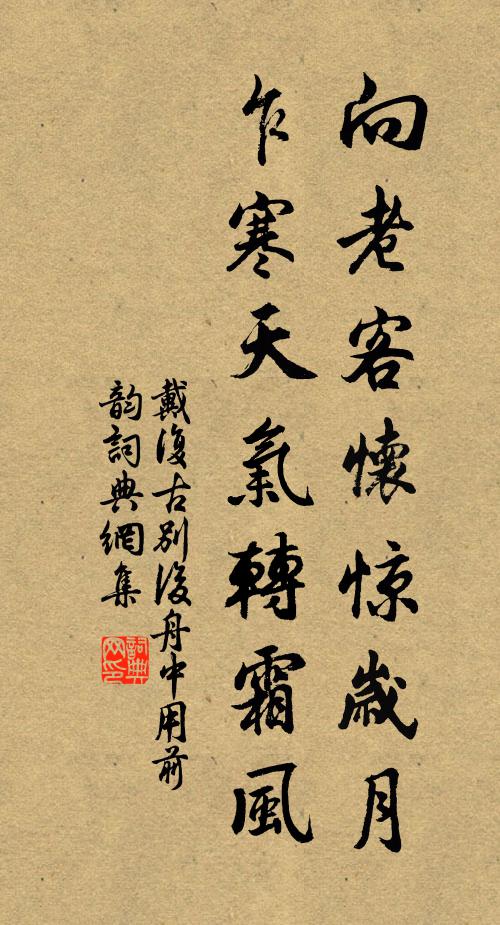 向老客懷惊歲月
乍寒天氣轉霜風
戴復古別後舟中用前
韵詞典網集
詞典
网印